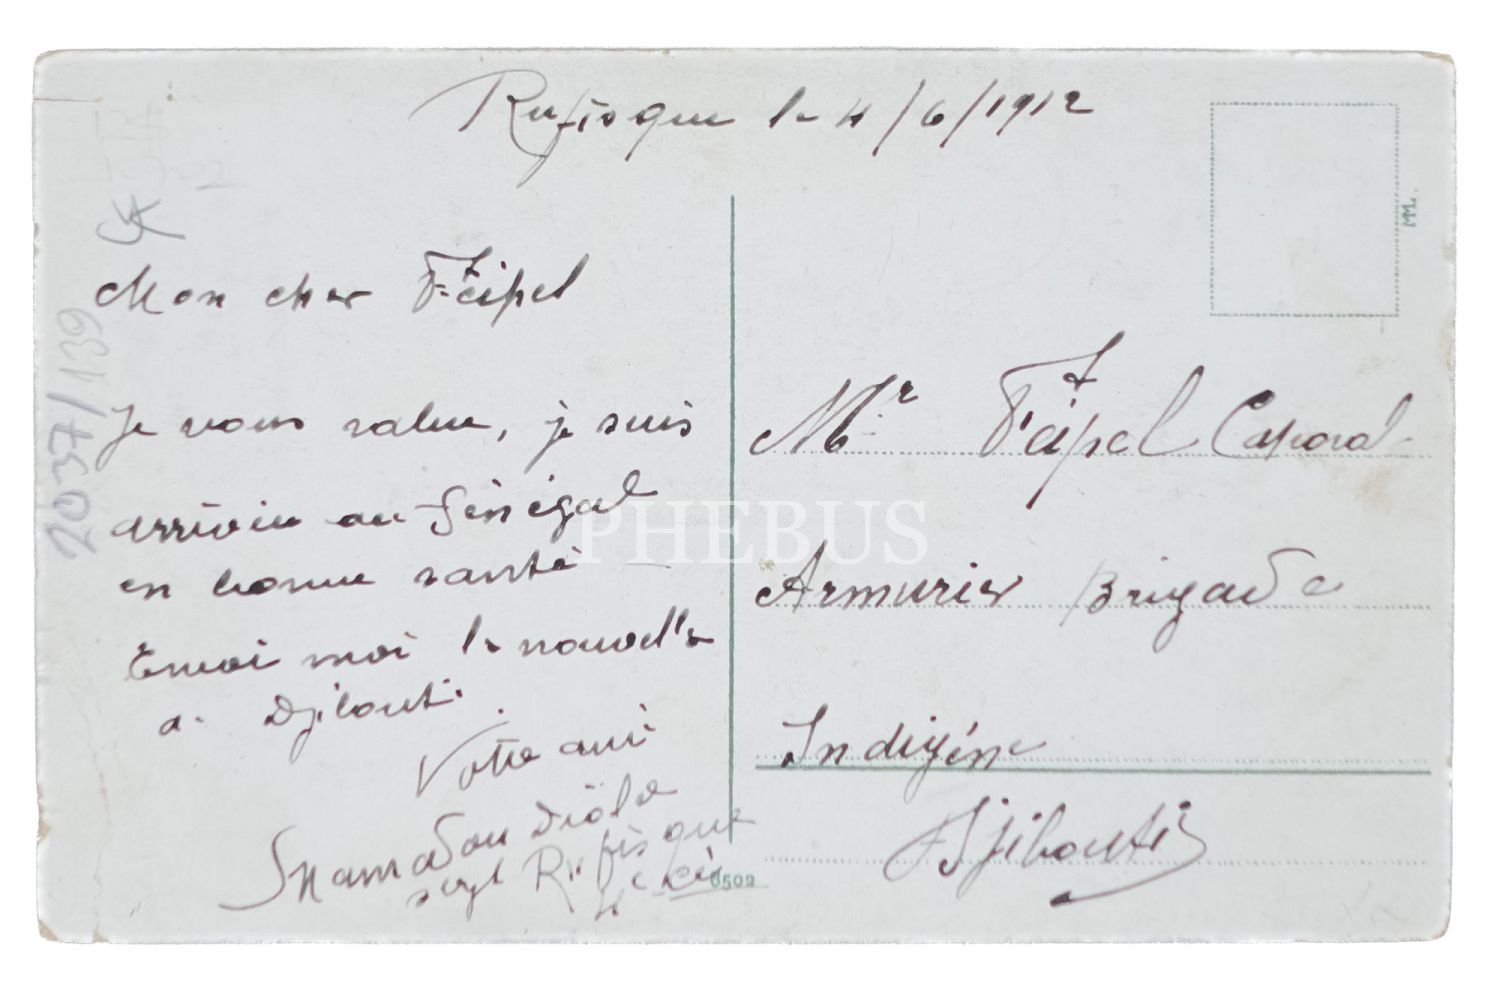 Rufisque le 4/6/1912
Mon cher Feipel
Je vous salue, je suis
arrivée au Sénégal
en bonne santé
Envoi moi le nouvelle
a Djibouti.
Votre ami
Mamadou Diola
sergt Rufisque
4e Cie
Mr Feipel Caporal
Armurier Brigade
Indigéne
Djibouti
2037/139
ML.
8502
PHEBUS